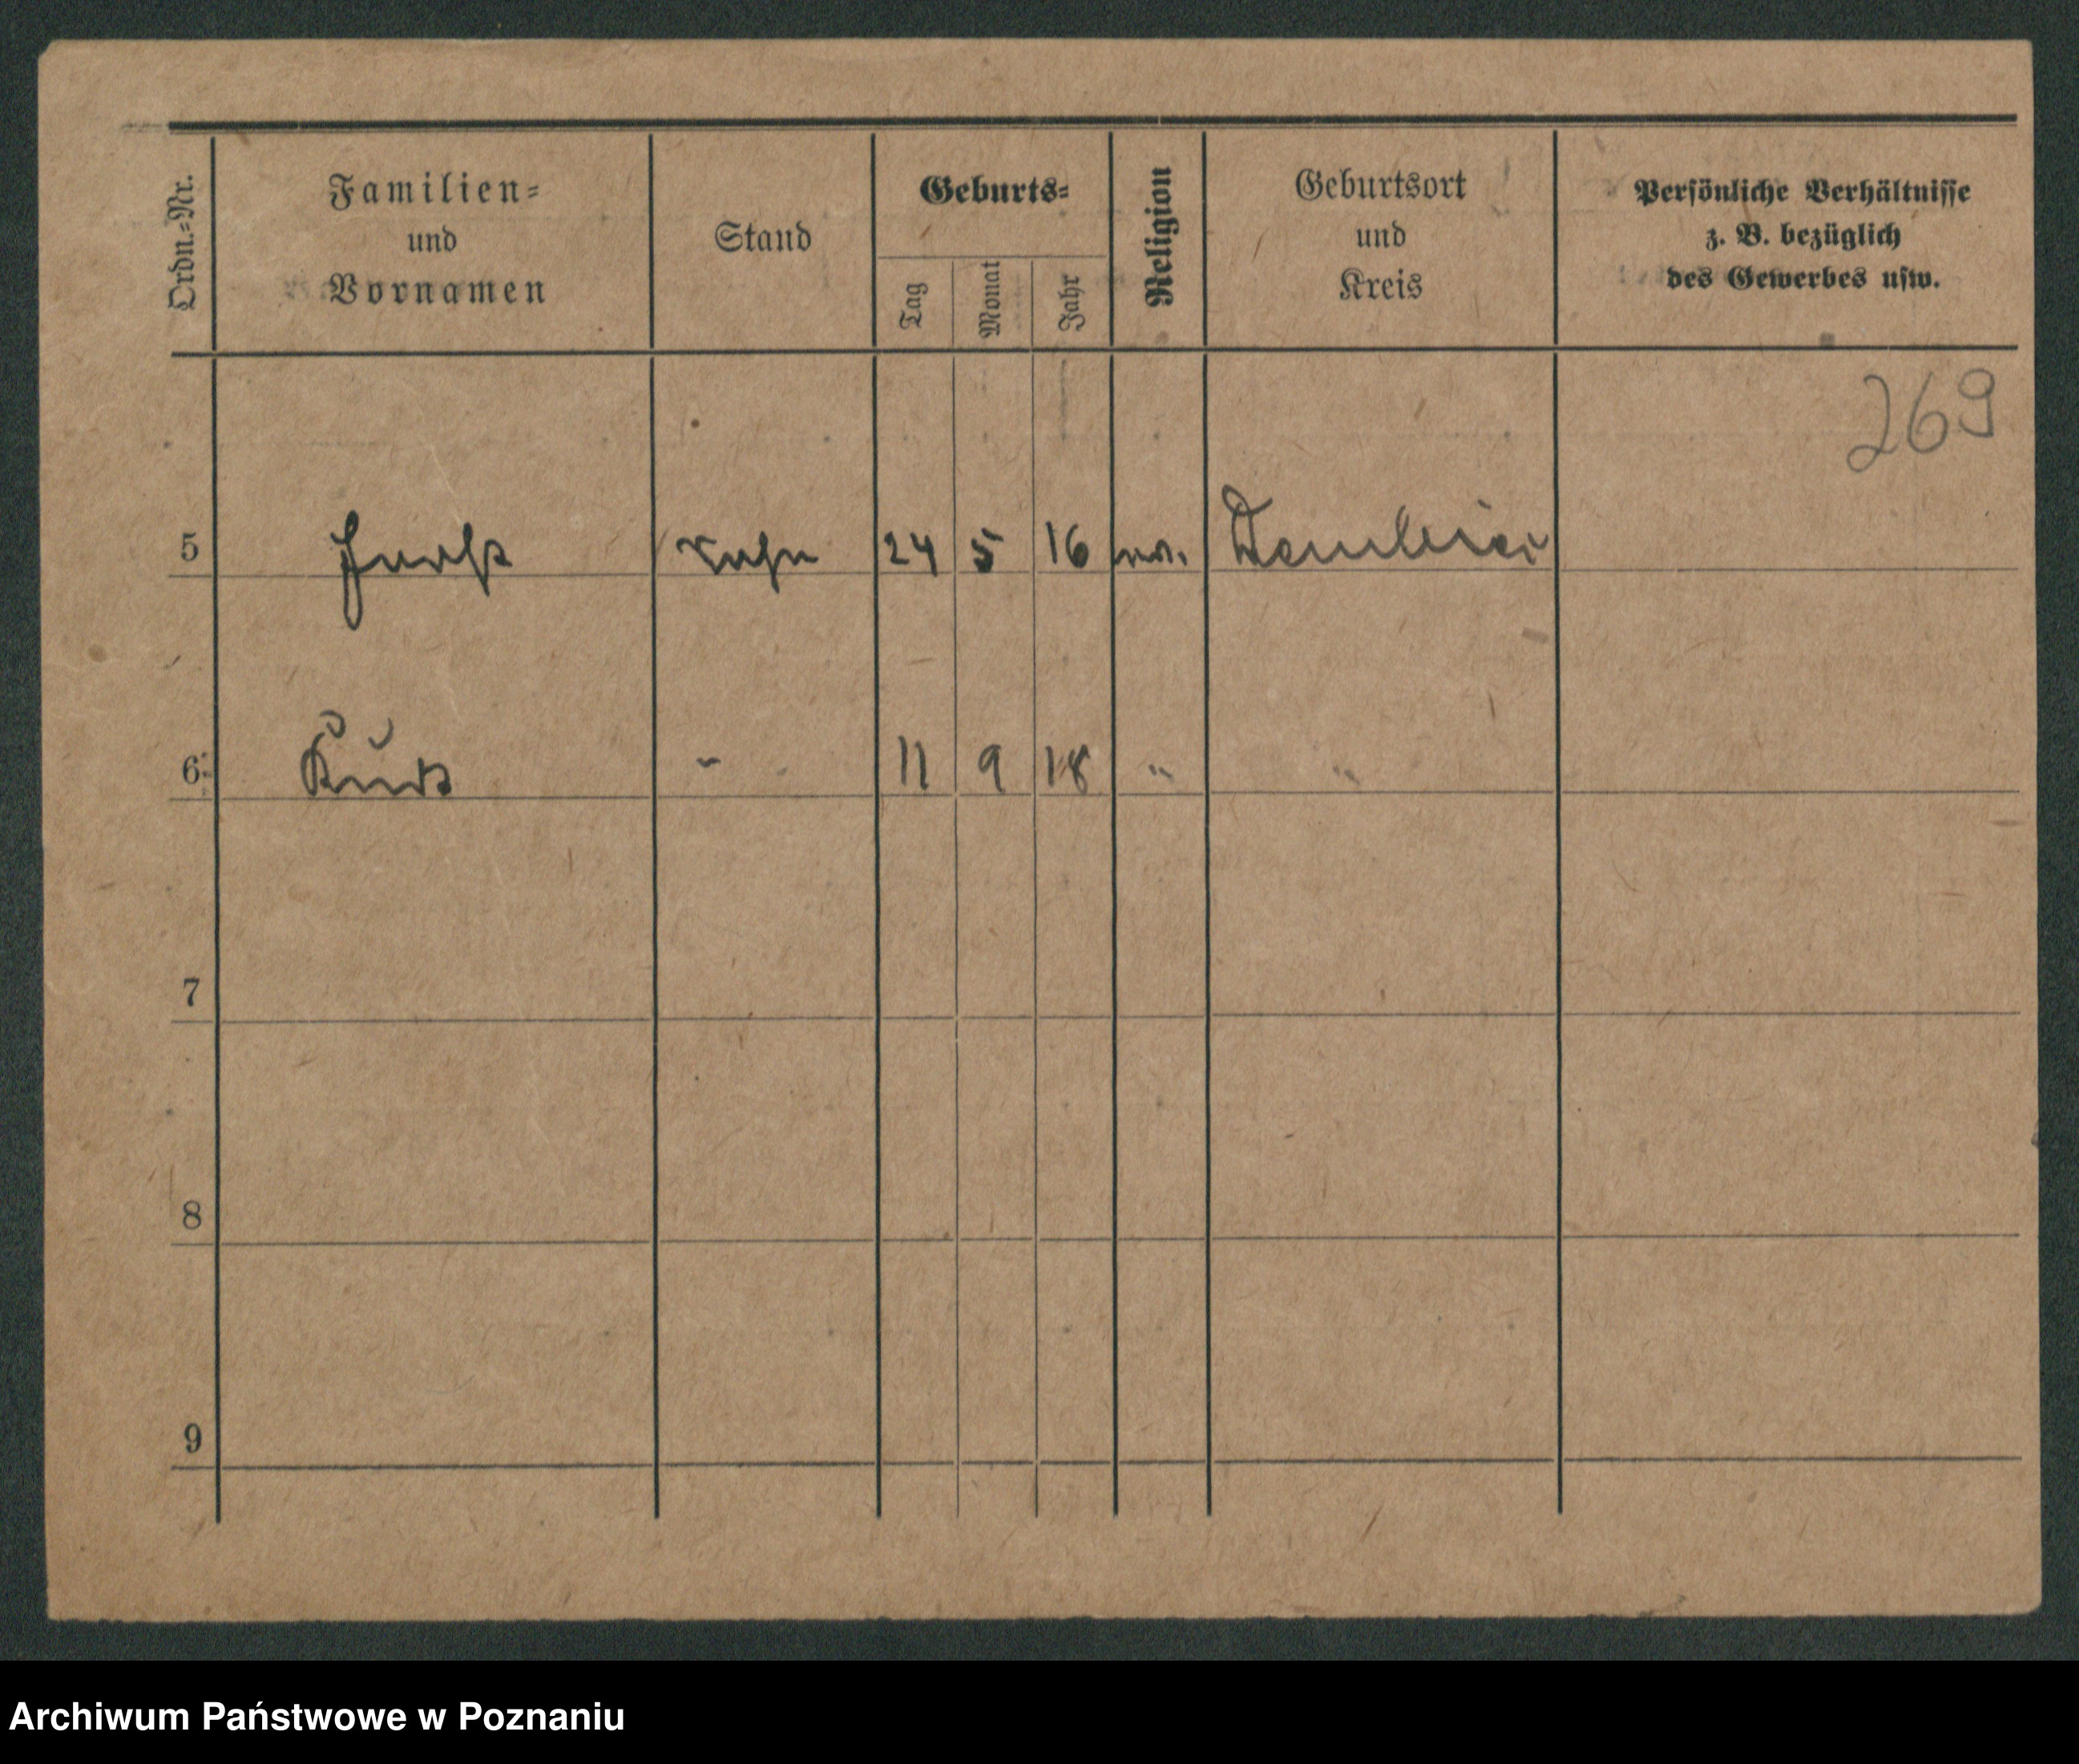 Ordn.-Nr.
Familien-
und
Vornamen
Stand
Geburts-
Tag
Monat
Jahr
Religion
Geburtsort
und
Kreis
Persönliche Verhältnisse
z. B. bezüglich
des Gewerbes usw.
269
5 Horst Sohn 24 5 16
6 Kurt " 11 9 18 " "
7
8
9
Archiwum Państwowe w Poznaniu